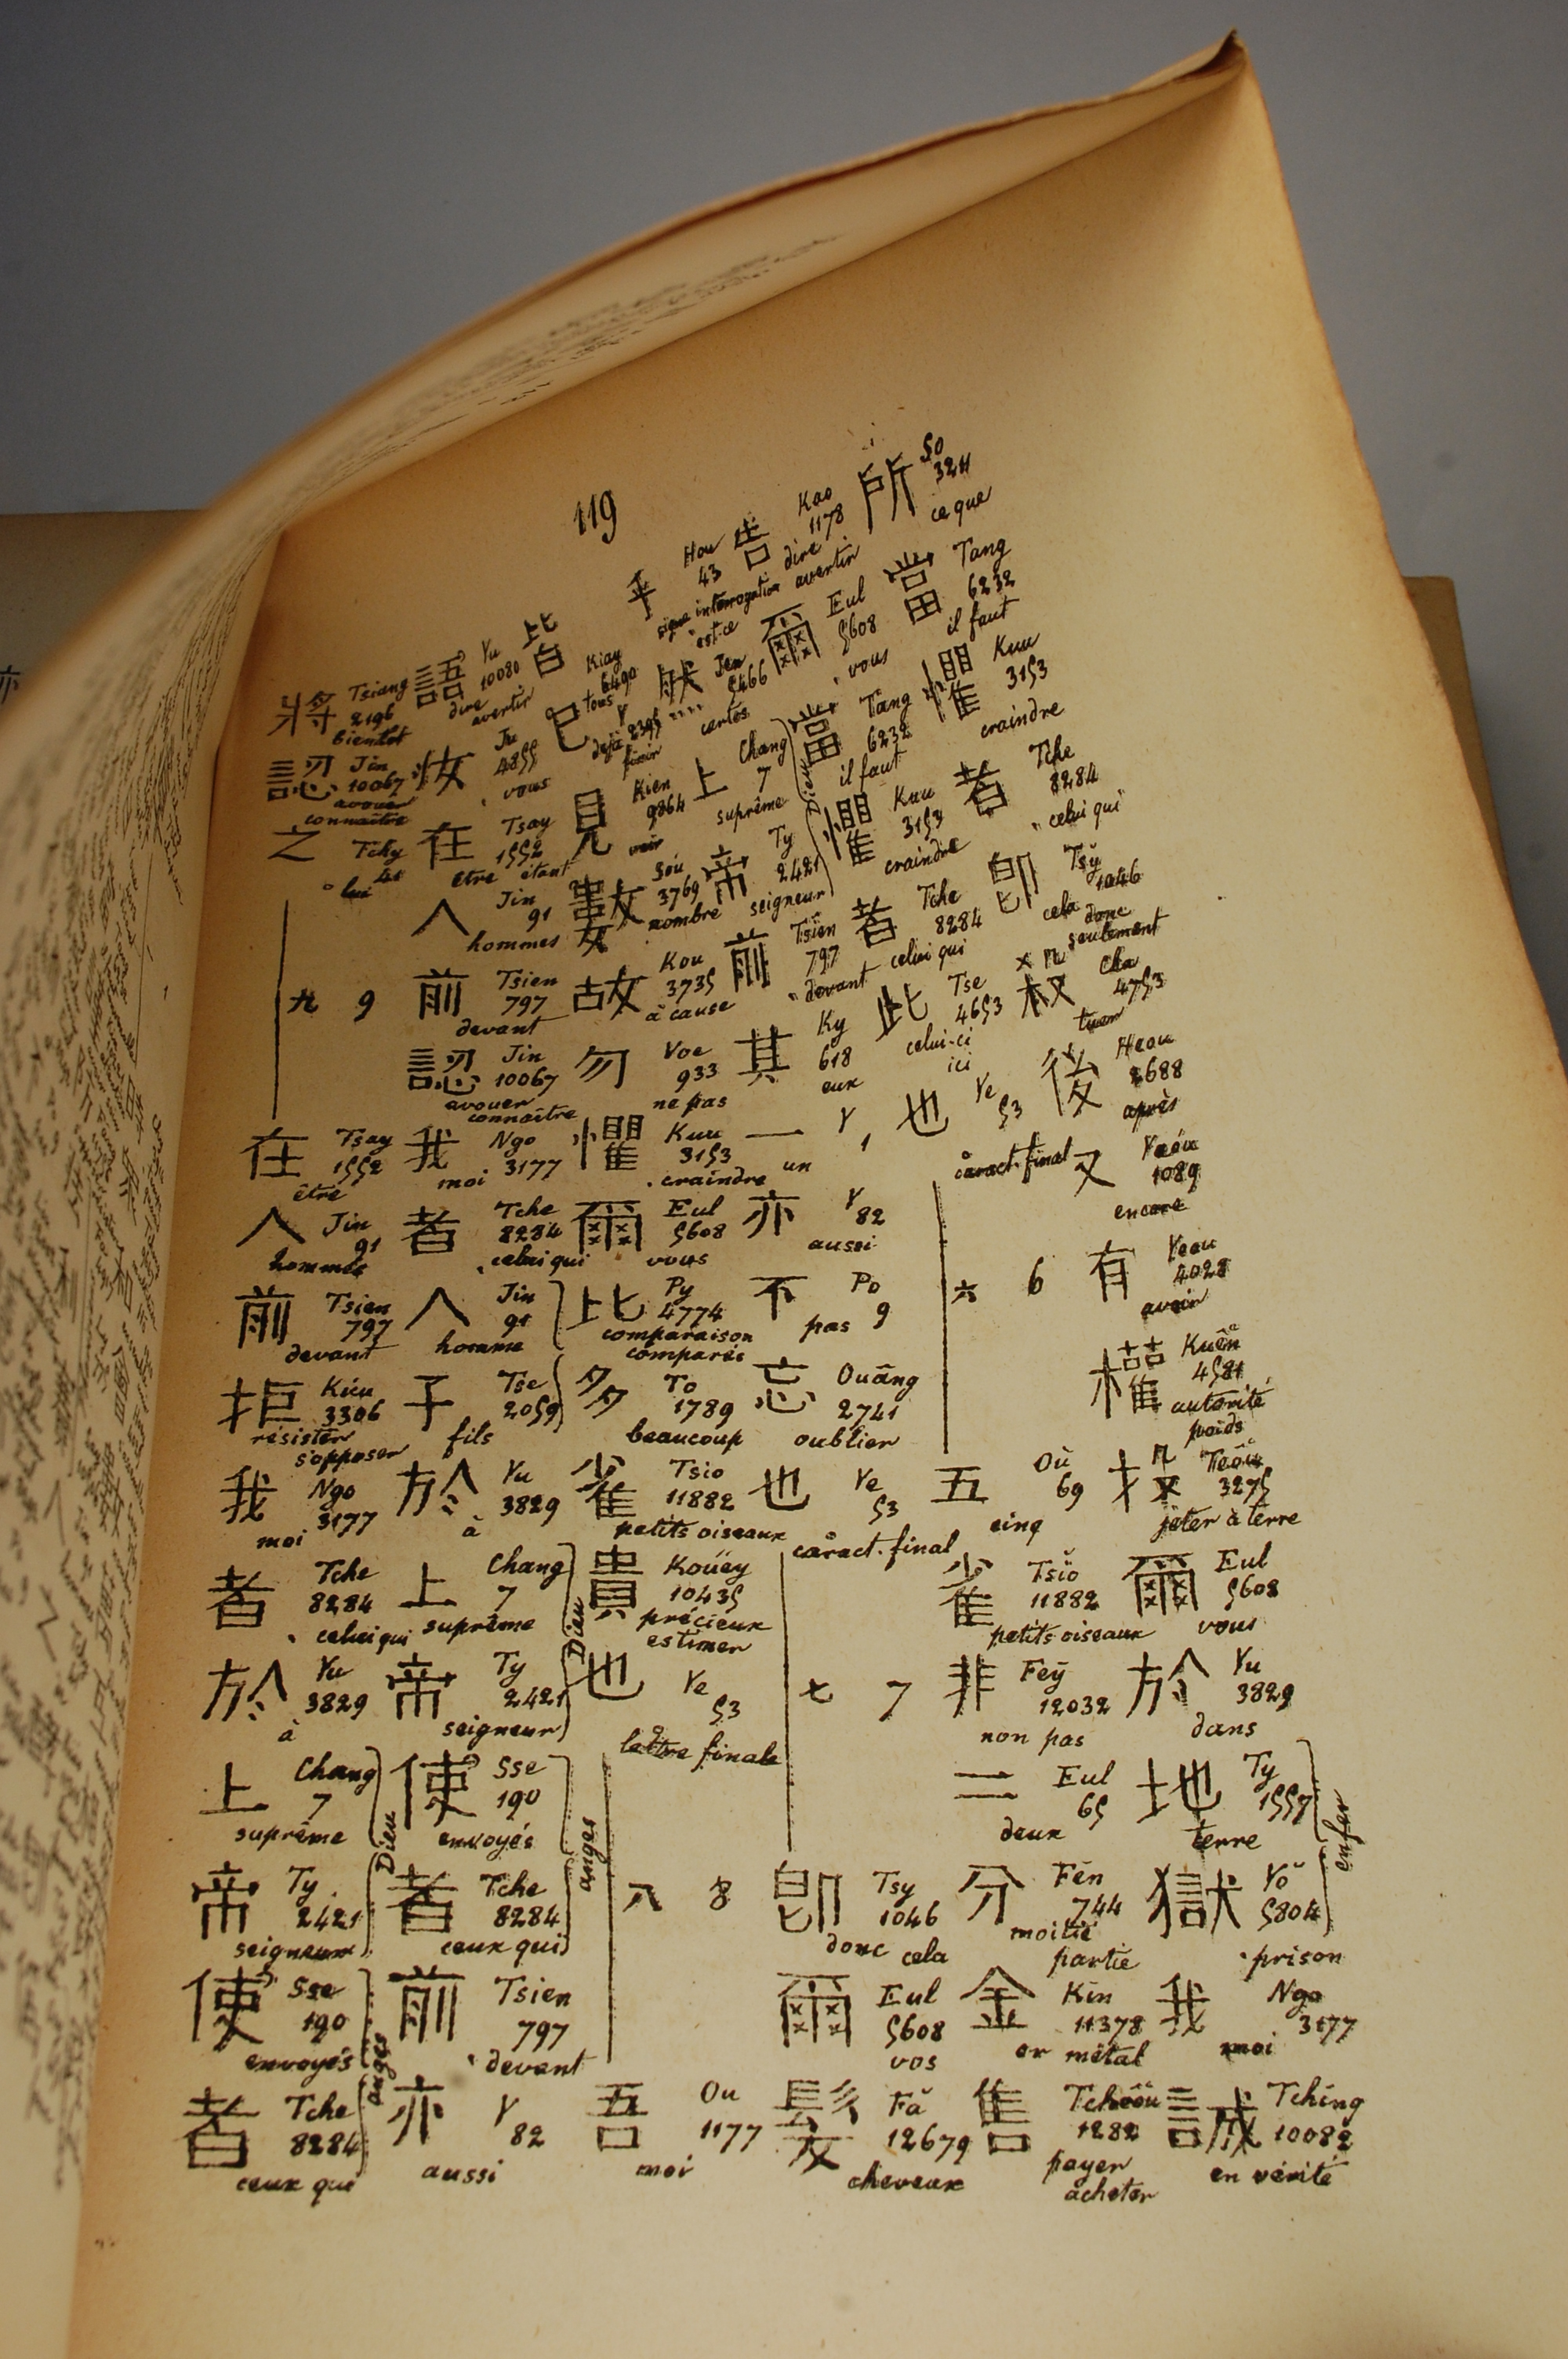 119
所 So 3211 ce que
當 Tang 6232 il faut
懼 Kuu 3153 craindre
者 Tche 8284 celui qui
卽 Tsy 1046 cela donc seulement
殺 Cha 4753 tuer
後 Heou 2688 après
又 Yeou 1089 encore
有 Yeou 4028 avoir
權 Kuen 4581 autorité poids
投 Teou 3275 jeter à terre
爾 Eul 5608 vous
於 Yu 3829 dans
地 Ty 1557 terre
獄 Yŏ 5804 prison
enfer
我 Ngo 3177 moi
誠 Tching 10082 en vérité
告 Kao 1178 dire avertir
爾 Eul 5608 vous
當 Tang 6232 il faut
懼 Kuu 3153 craindre
者 Tche 8284 celui qui
此 Tse 4653 celui-ci ici
也 Ye 53 caract. final
六 6
五 Où 69 cinq
雀 Tsiŏ 11882 petits oiseaux
非 Fey 12032 non pas
二 Eul 65 deux
分 Fen 744 moitié partie
金 Kin 11378 or métal
售 Tcheou 1282 payer acheter
乎 Hou 43 signe interrogation est-ce
然 Jen 5466 certes
上 Chang 7 suprême
帝 Ty 2421 seigneur
Dieu
前 Tsien 797 devant
其 Ky 618 eux
一 Y 1 un
亦 Y 82 aussi
不 Po 9 pas
忘 Ouâng 2741 oublier
也 Ye 53 caract. final
七 7
卽 Tsy 1046 donc cela
爾 Eul 5608 vos
髮 Fă 12679 cheveux
皆 Kiay 6490 tous
已 Y 2395 déjà finir
見 Kien 9864 voir
數 Sou 3769 nombre
故 Kou 3735 à cause
勿 Voe 933 ne pas
懼 Kuu 3153 craindre
爾 Eul 5608 vous
比 Py 4774 comparaison comparés
多 To 1789 beaucoup
雀 Tsio 11882 petits oiseaux
貴 Kouëy 10435 précieux estimer
也 Ye 53 lettre finale
八 8
吾 Ou 1177 moi
語 Yu 10080 dire avertir
汝 Ju 4855 vous
在 Tsay 1552 etre étant
人 Jin 91 hommes
前 Tsien 797 devant
認 Jin 10067 avouer connaître
我 Ngo 3177 moi
者 Tche 8284 celui qui
人 Jin 91 homme
子 Tse 2059 fils
於 Yu 3829 à
上 Chang 7 suprême
帝 Ty 2421 seigneur
Dieu
使 Sse 190 envoyés
者 Tche 8284 ceux qui
anges
前 Tsien 797 devant
亦 Y 82 aussi
將 Tsiang 2196 bientot
認 Jin 10067 avouer connaître
之 Tchy 41 lui
九 9
在 Tsay 1552 être
人 Jin 91 hommes
前 Tsien 797 devant
拒 Kiu 3306 résister s'opposer
我 Ngo 3177 moi
者 Tche 8284 celui qui
於 Yu 3829 à
上 Chang 7 suprême
帝 Ty 2421 seigneur
Dieu
使 Sse 190 envoyés
者 Tche 8284 ceux qui
anges